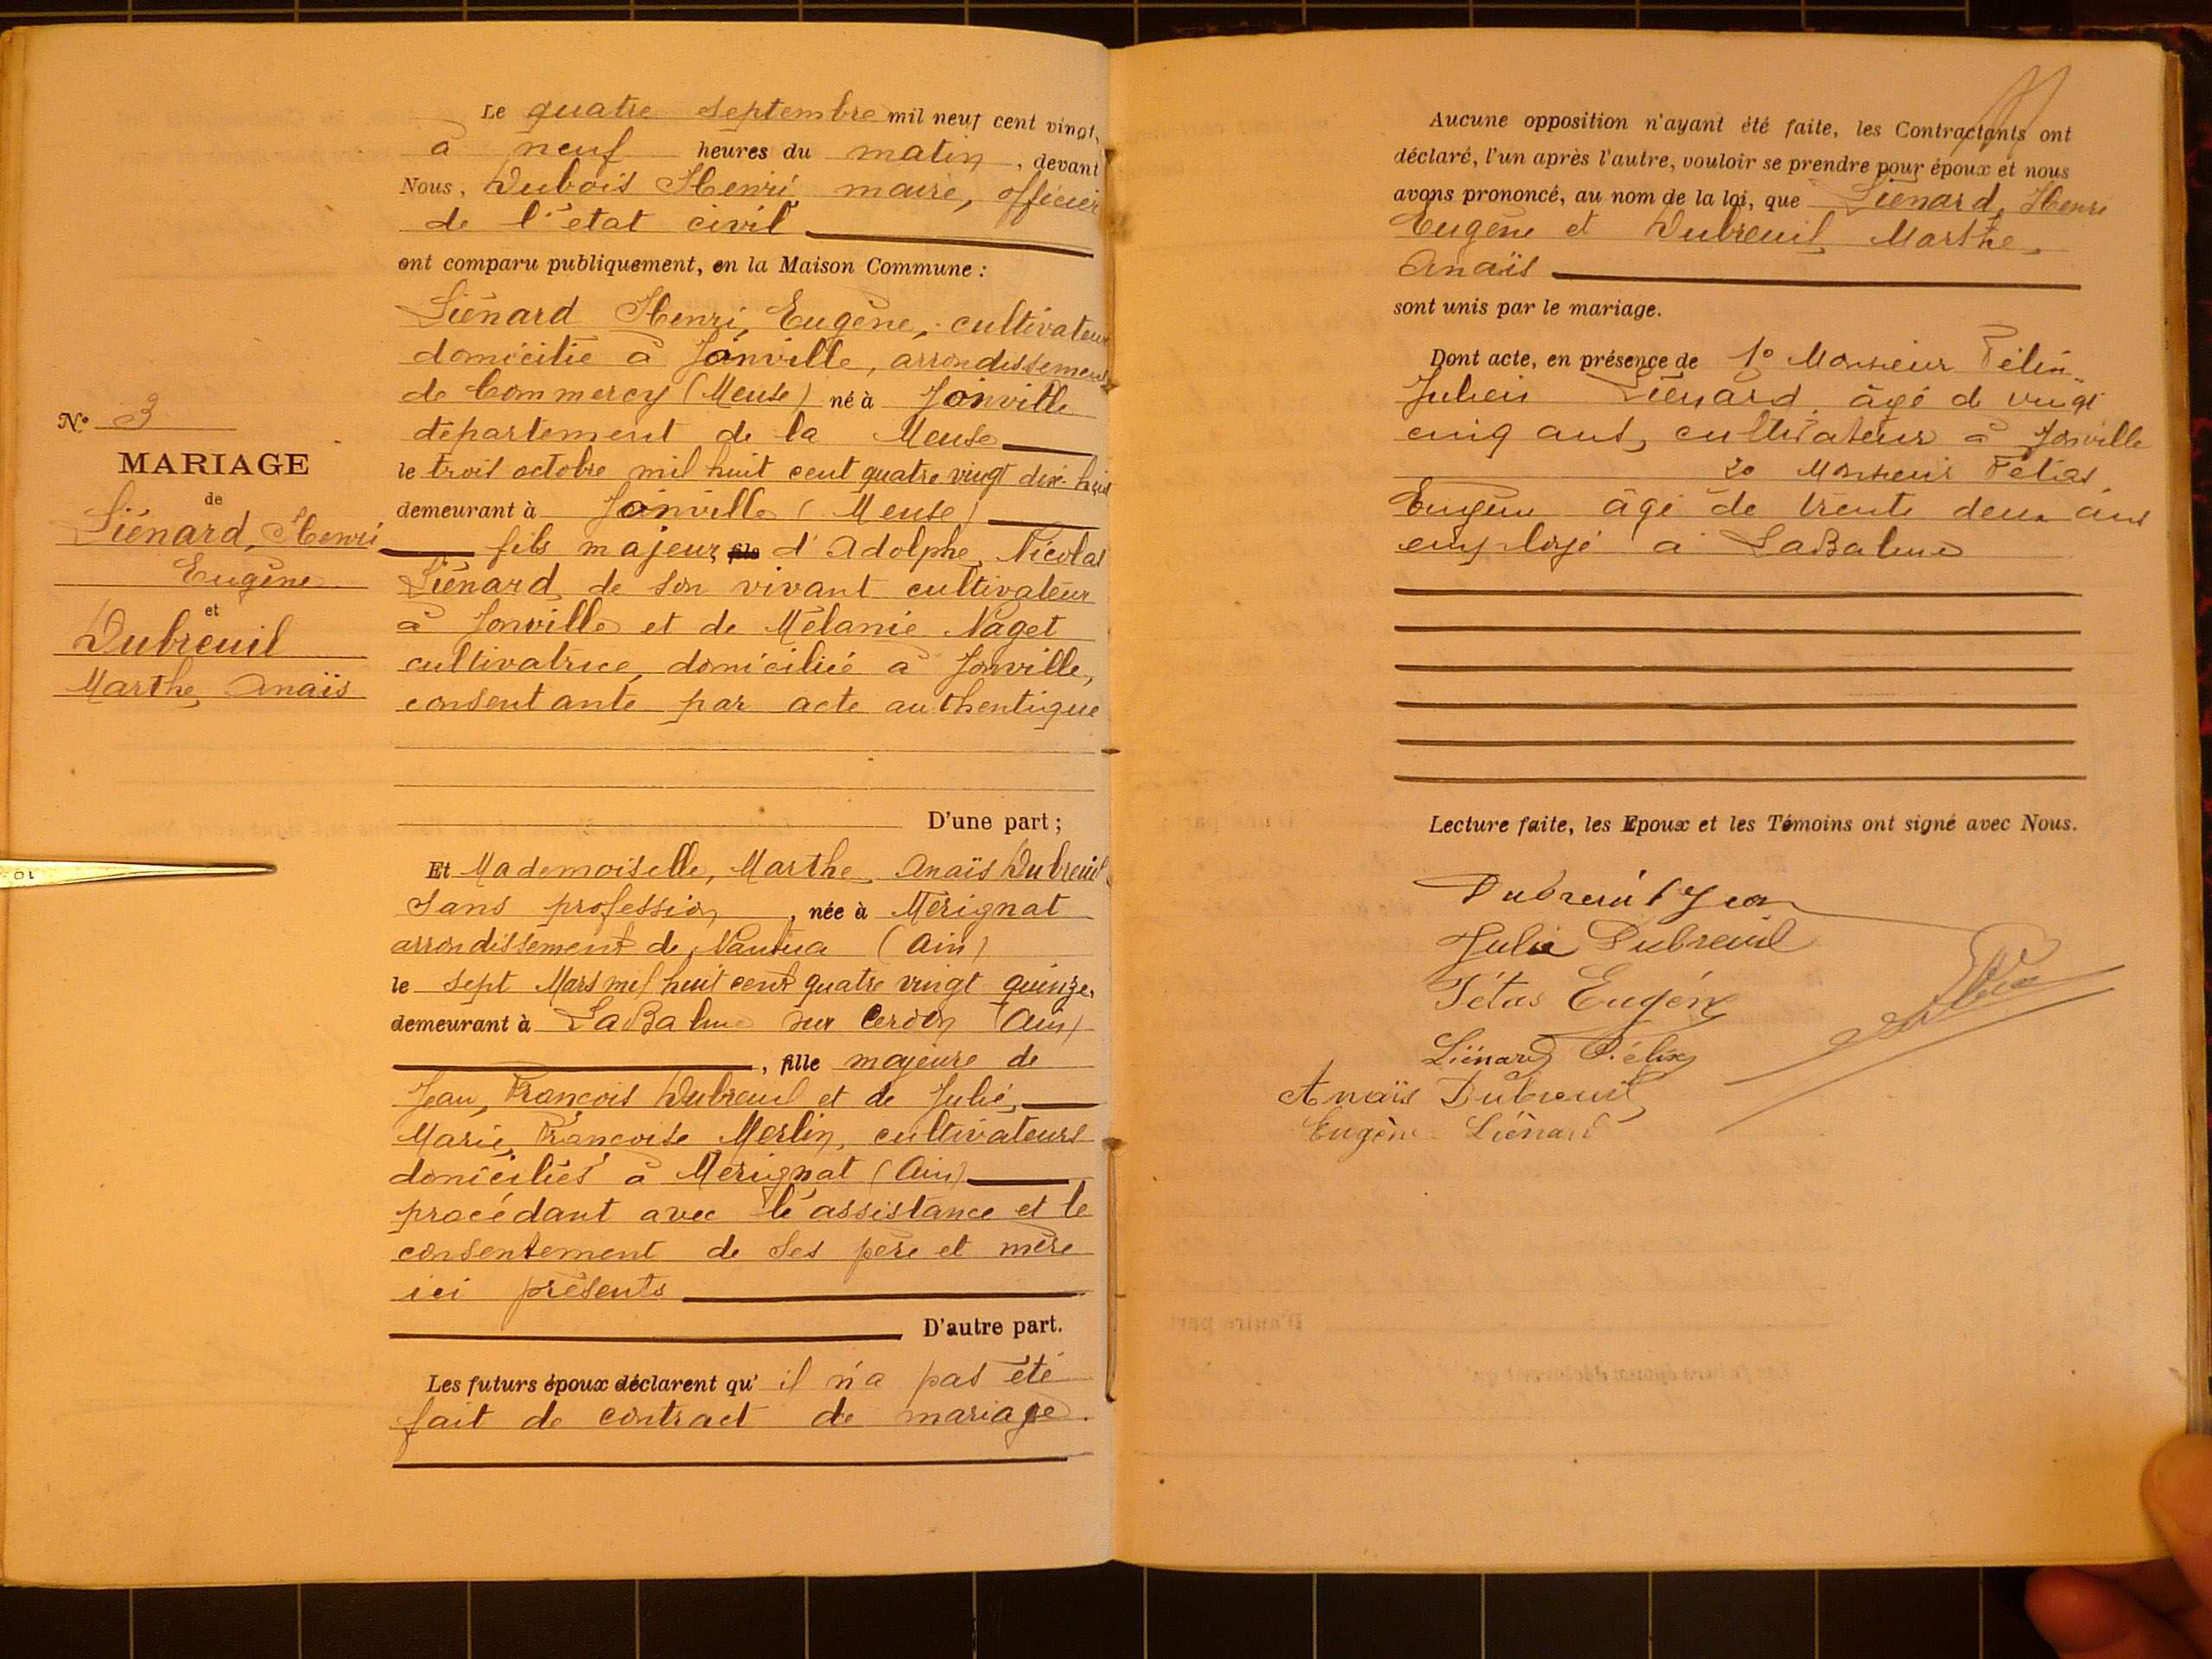 N° 3
MARIAGE
de
Liénard, Henri
Eugène
et
Dubreuil
Marthe, Anaïs
Le quatre septembre mil neuf cent vingt,
à neuf heures du matin, devant
Nous, Dubois Henri maire, officier
de l'état civil
ont comparu publiquement, en la Maison Commune :
Liénard Henri, Eugène, cultivateur
domicilié à Joinville, arrondissement
de Commercy (Meuse) né à Joinville
département de la Meuse
le trois octobre mil huit cent quatre vingt dix-huit
demeurant à Joinville (Meuse)
fils majeur, fils d'Adolphe, Nicolas
Liénard, de son vivant cultivateur
à Jonville et de Mélanie Naget
cultivatrice, domiciliée à Jonville,
consentante par acte authentique
D'une part ;
Et Mademoiselle, Marthe, Anaïs Dubreuil
sans profession, née à Mérignat
arrondissement de Nantua (Ain)
le sept Mars mil huit cent quatre vingt quinze,
demeurant à LaBalme sur Cerdon (Ain)
, fille majeure de
Jean, François Dubreuil et de Julie,
Marie, Françoise Merlin, cultivateurs
domiciliés à Merignat (Ain)
procédant avec l'assistance et le
consentement de ses père et mère
ici présents
D'autre part.
Les futurs époux déclarent qu'il n'a pas été
fait de contract de mariage.
Aucune opposition n'ayant été faite, les Contractants ont
déclaré, l'un après l'autre, vouloir se prendre pour époux et nous
avons prononcé, au nom de la loi, que Liénard, Henri
Eugène et Dubreuil Marthe,
Anaïs
sont unis par le mariage.
Dont acte, en présence de 1° Monsieur Félix
Julien Liénard, âgé de vingt
cinq ans, cultivateur à Jonville
2° Monsieur Tétas,
Eugène âgé de trente deux ans
employé à LaBalme
Lecture faite, les Epoux et les Témoins ont signé avec Nous.
Dubreuil Jean
Julie Dubreuil
Tétas Eugène
Liénard Félix
Anaïs Dubreuil
Eugène Liénard